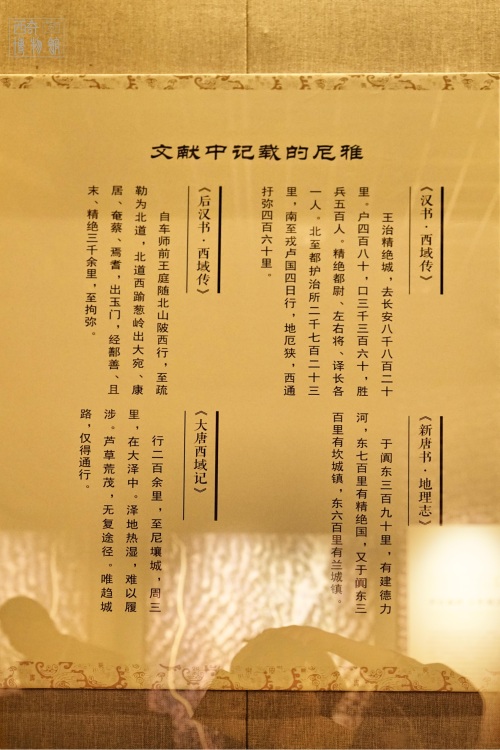 文献中记载的尼雅
《汉书·西域传》
王治精绝城，去长安八千八百二十
里。户四百八十，口三千三百六十，胜
兵五百人。精绝都尉、左右将、译长各
一人。北至都护治所二千七百二十三
里，南至戎卢国四日行，地厄狭，西通
扜弥四百六十里。
《后汉书·西域传》
自车师前王庭随北山陂西行，至疏
勒为北道，北道西踰葱岭出大宛、康
居、奄蔡、焉耆，出玉门，经鄯善、且
末、精绝三千余里，至拘弥。
《新唐书·地理志》
于阗东三百九十里，有建德力
河，东七百里有精绝国，又于阗东三
百里有坎城镇，东六百里有兰城镇。
《大唐西域记》
行二百余里，至尼壤城，周三
里，在大泽中。泽地热湿，难以履
涉。芦草荒茂，无复途径。唯趋城
路，仅得通行。
博物馆